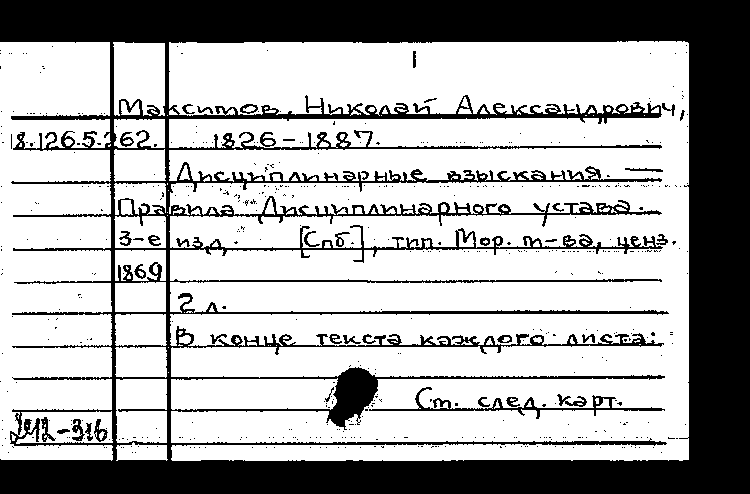 1
Максимов, Николай Александрович,
18.126.5.262. 1826-1887.
Дисциплинарные взыскания. —
Правила Дисциплинарного устава.
3-е изд. [Спб.], тип. Мор. м-ва, ценз.
1869
2 л.
В конце текста каждого листа:
Ст. след. карт.